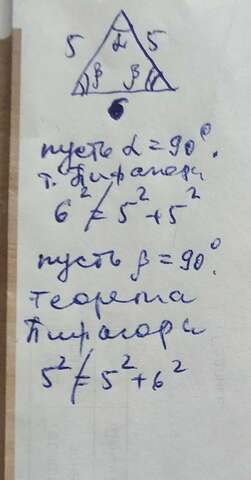 5 α 5
β β
6
пусть α = 90°.
т. Пифагора
6² ≠ 5² + 5²
пусть β = 90°.
теорема
Пифагора
5² ≠ 5² + 6²